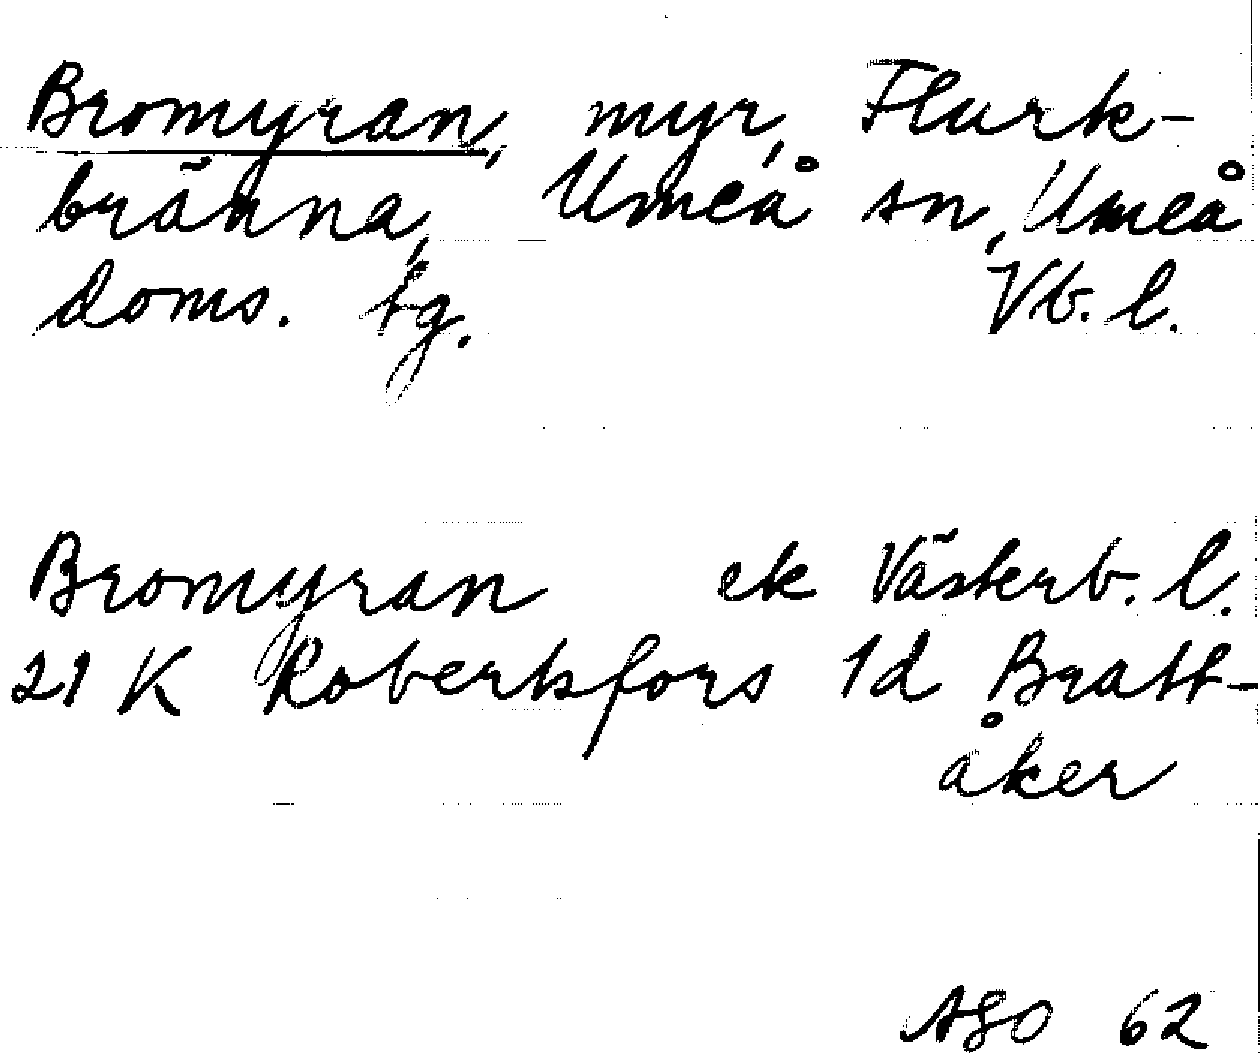 Bromyran, myr, Flurk-
bränna, Umeå sn, Umeå
doms. tg. Vb. l.
Bromyran ek Västerb. l.
21 K Robertsfors 1d Bratt-
åker
ASO 62